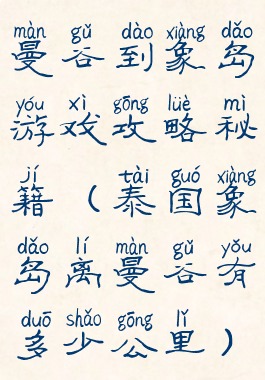 màn gǔ dào xiàng dǎo
曼谷到象岛
yóu xì gōng lüè mì
游戏攻略秘
jí tài guó xiàng
籍（泰国象
dǎo lí màn gǔ yǒu
岛离曼谷有
duō shǎo gōng lǐ
多少公里）